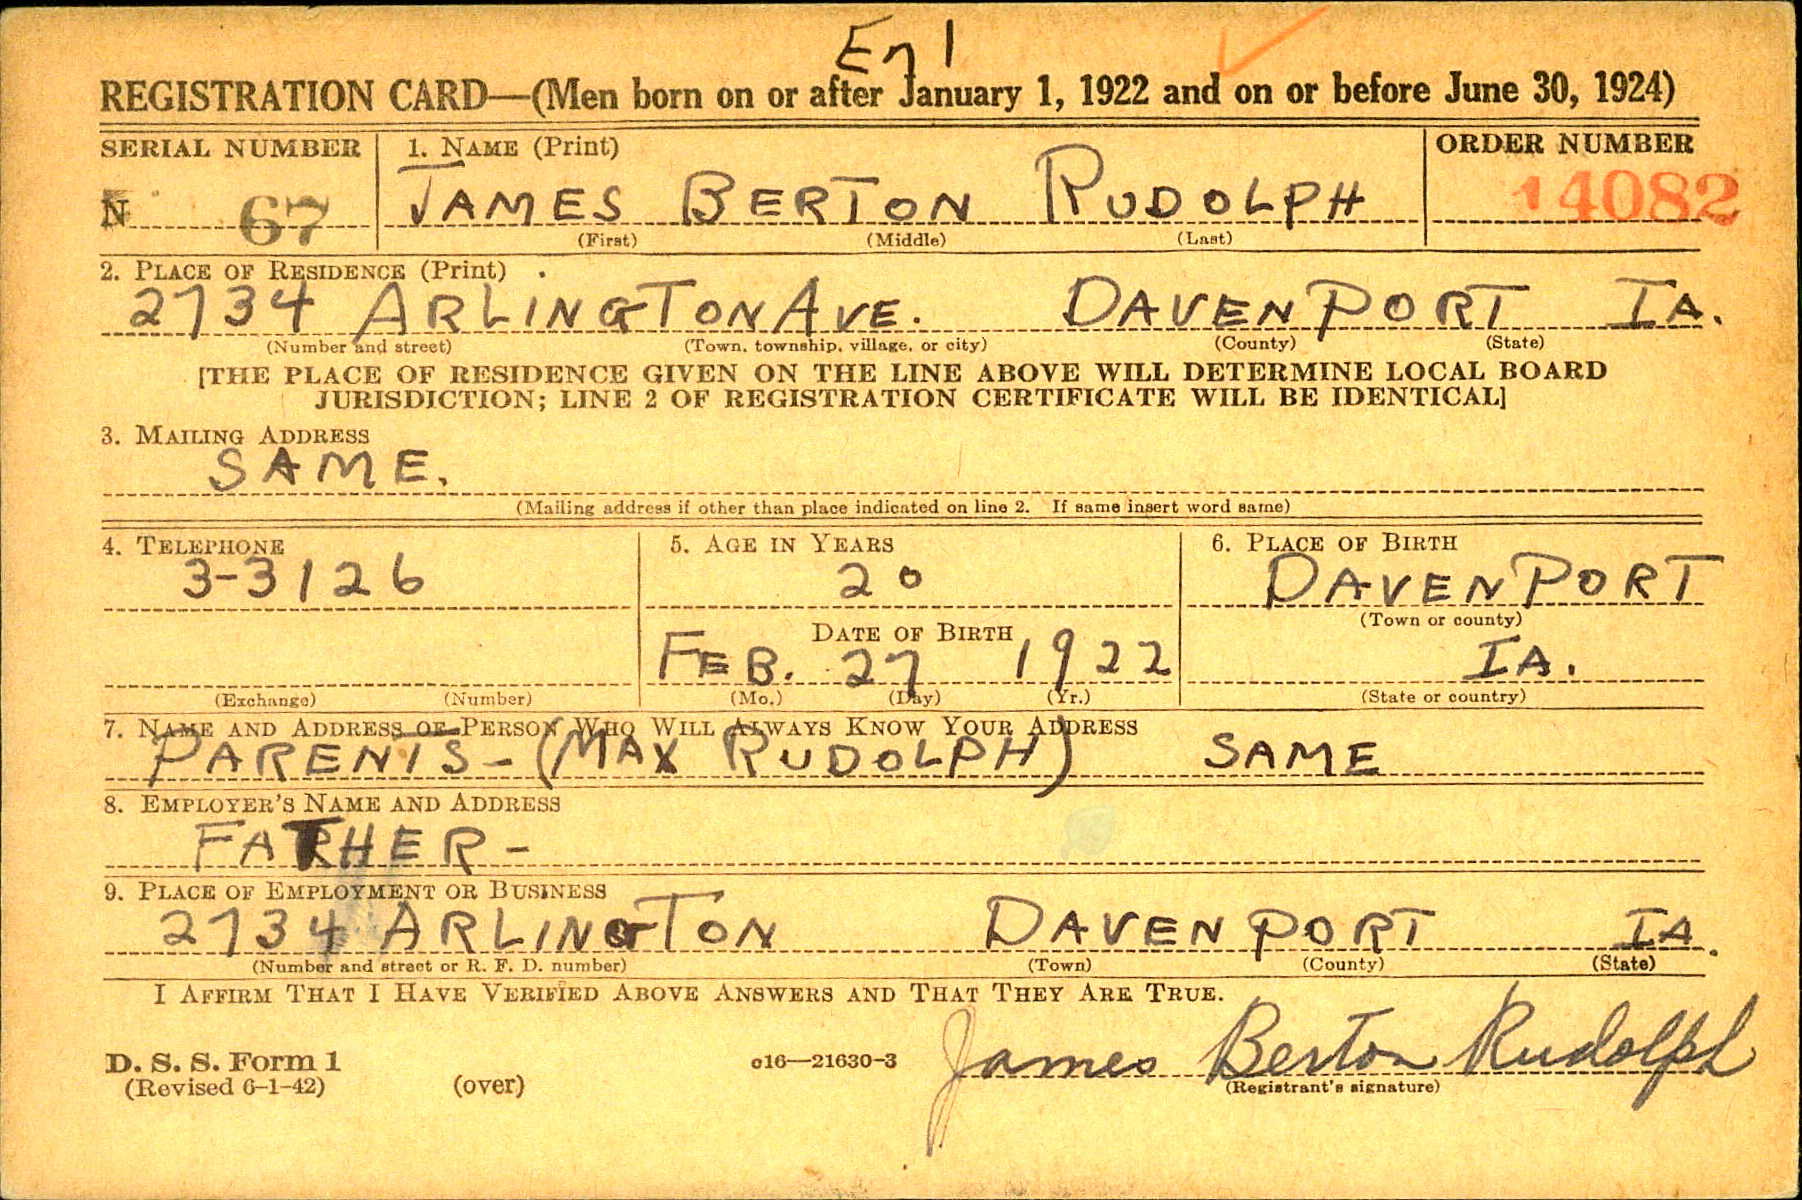 En l
REGISTRATION CARD—(Men born on or after January 1, 1922 and on or before June 30, 1924)
SERIAL NUMBER 1. NAME (Print) ORDER NUMBER
N 67 JAMES BERTON RUDOLPH 14082
(First) (Middle) (Last)
2. PLACE OF RESIDENCE (Print)
2734 ARLINGTON AVE. DAVENPORT IA.
(Number and street) (Town, township, village, or city) (County) (State)
[THE PLACE OF RESIDENCE GIVEN ON THE LINE ABOVE WILL DETERMINE LOCAL BOARD
JURISDICTION; LINE 2 OF REGISTRATION CERTIFICATE WILL BE IDENTICAL]
3. MAILING ADDRESS
SAME.
(Mailing address if other than place indicated on line 2. If same insert word same)
4. TELEPHONE 5. AGE IN YEARS 6. PLACE OF BIRTH
3-3126 20 DAVENPORT
(Town or county)
DATE OF BIRTH
FEB. 27 1922 IA.
(Exchange) (Number) (Mo.) (Day) (Yr.) (State or country)
7. NAME AND ADDRESS OF PERSON WHO WILL ALWAYS KNOW YOUR ADDRESS
PARENTS - (MAX RUDOLPH) SAME
8. EMPLOYER'S NAME AND ADDRESS
FATHER -
9. PLACE OF EMPLOYMENT OR BUSINESS
2734 ARLINGTON DAVENPORT IA.
(Number and street or R. F. D. number) (Town) (County) (State)
I AFFIRM THAT I HAVE VERIFIED ABOVE ANSWERS AND THAT THEY ARE TRUE.
James Berton Rudolph
D. S. S. Form 1 c16—21630-3 (Registrant's signature)
(Revised 6-1-42) (over)